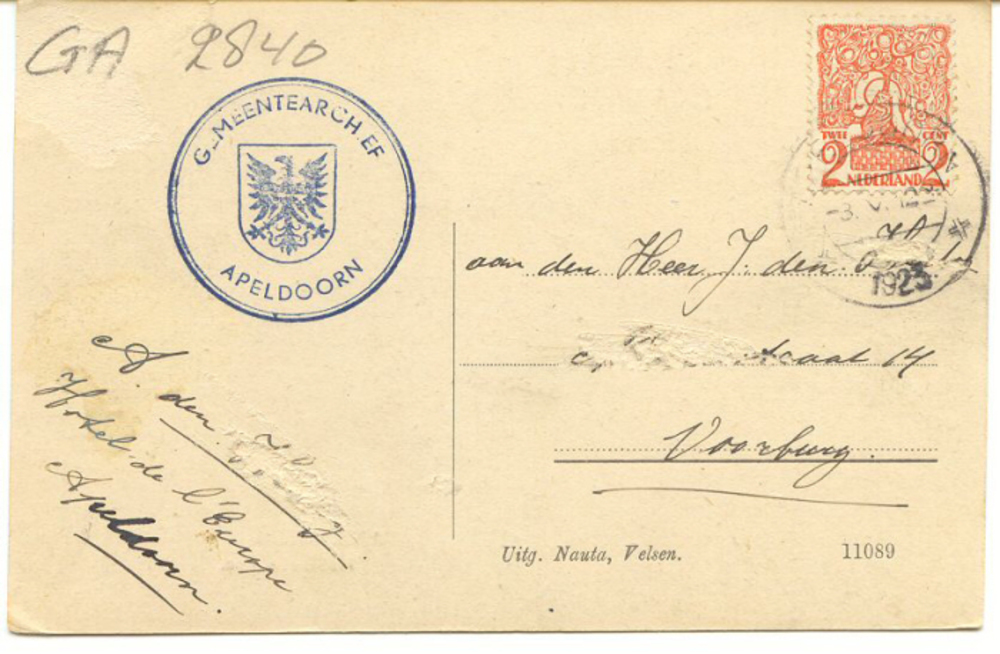 GA 2840
GEMEENTEARCHIEF
APELDOORN
TWEE CENT
2 NEDERLAND 2
1923
aan den Heer J. den
straat 14
Voorburg.
A. den
Hotel de l'Europe
Apeldoorn.
Uitg. Nauta, Velsen. 11089